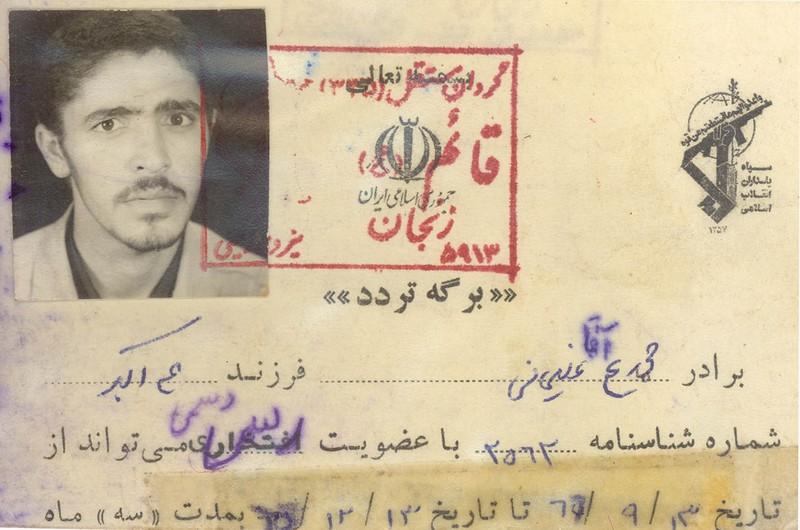 بسمه تعالی
جمهوری اسلامی ایران
سپاه
پاسداران
انقلاب
اسلامی
۱۳۵۷
گردان مستقل (۳۳۵)
قائم (عج)
زنجان
۵۹۱۳
«« برگه تردد »»
برادر محمد آقا فرزند علی اکبر
شماره شناسنامه ۲۵۶۲ با عضویت افتخاری رسمی می تواند از
تاریخ ۱۳/۹/۶۶ تا تاریخ ۱۳/۱۲/ بمدت «سه» ماه